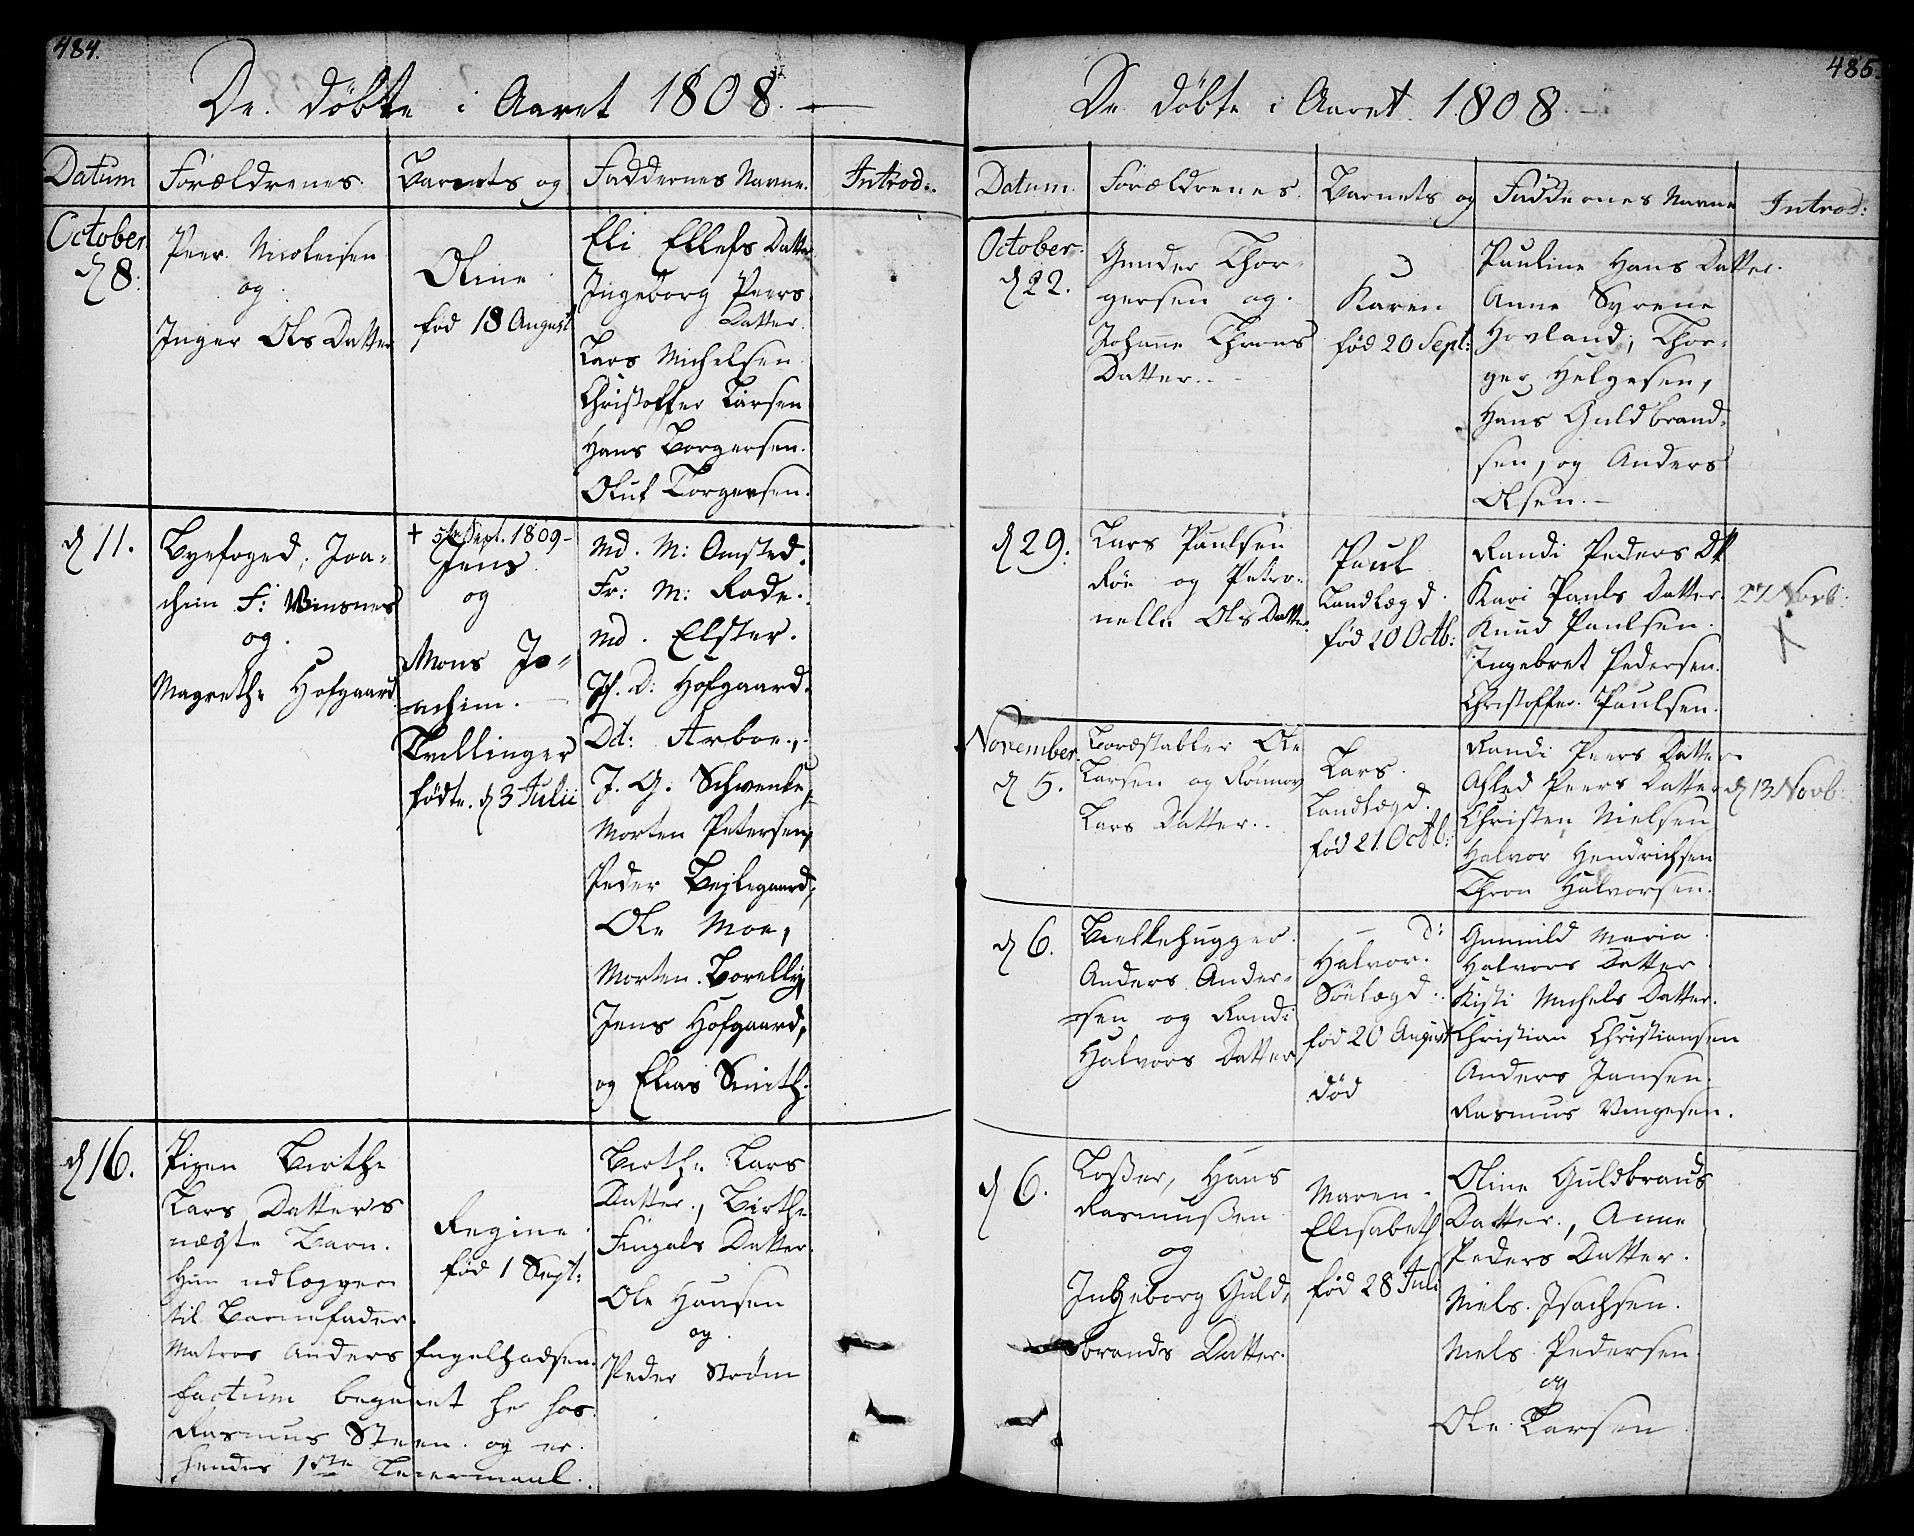 484.
De døbte i Aaret 1808.
Datum Forældrenes. Barnets og Faddernes Navne. Introd:
October
d 8.
Peer Nicoleisen
og
Inger Ols Datter
Oline
fød 18 August
Eli Ellefs Datter
Ingeborg Peers
Datter.
Lars Michelsen
Christoffer Larsen
Hans Borgersen.
Oluf Torgersen.
d 11.
Byefoged, Joa-
chim F: Winsnes
og
Magrethe Hofgaard
† 5te Sept. 1809-
Jens
og
Mons Jo-
achim.
Tvillinger
fødte. d 3 Julii
Md. M: Omsted.
Fr: M: Rode.
Md. Elster.
Jf. D: Hofgaard.
Dd: Arboe,
J. G. Schwenke,
Morten Petersen,
Peder Bejlegaard,
Ole Moe,
Morten Borelly,
Jens Hofgaard,
og Elias Smith.
d 16.
Pigen Birthe
Lars Datters
uægte Barn.
Hun udlægger
til Barnefader
Matros Anders Engelhadsen.
factum begaaet her hos
Rasmus Steen og er
hendes 1ste Leiermaal.
Regine
fød 1 Sept:
Birthe Lars
Datter, Birthe
Fingals Datter.
Ole Hansen
og
Peder Strøm
485.
De døbte i Aaret 1808.
Datum. Forældrenes. Barnets og Faddernes Navne Introd:
October
d 22.
Gunder Thor-
gersen og
Johanne Throns
Datter.
Karen
fød 20 Sept:
Pauline Hans Datter.
Anne Syrene
Hovland, Thor-
ger Helgesen,
Hans Guldbrand-
sen, og Anders
Olsen.
d 29.
Lars Paulsen
Røe og Petro-
nelle Ols Datter
Paul
Landlægd.
fød 20 Octb:
Randi Peders Dtr
Kari Pauls Datter.
Knud Paulsen.
Ingebret Pedersen.
Christoffer Paulsen.
27 Novb:
x
November
d 5.
Bordstabler Ole
Larsen og Rønnov
Lars Datter.
Lars.
Landlægd.
fød 21 Octb:
Randi Peers Datter
Asled Peers Datter
Christen Nielsen
Halvor Hendrichsen
Thron Halvorsen.
d 13 Novb:
d 6.
Bielkehugger
Anders Ander-
sen og Randi
Halvors Datter
Halvor.
Søelægd.
fød 20 August
død
Gunnild Maria
Halvors Datter
Kisti Michels Datter.
Christian Christiansen
Anders Jansen.
Rasmus Vingesen.
d 6.
Losser, Hans
Rasmussen
og
Ingeborg Guld-
brands Datter.
Maren
Elisabeth
fød 28 Juli
Oline Guldbrans
Datter, Anne
Peders Datter.
Niels Isachsen.
Niels Pedersen
og
Ole Larsen